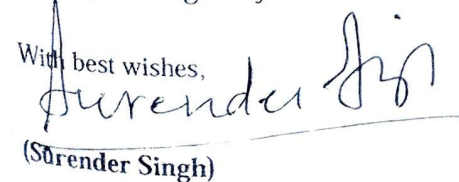 With best wishes,
Surender Singh
(Surender Singh)